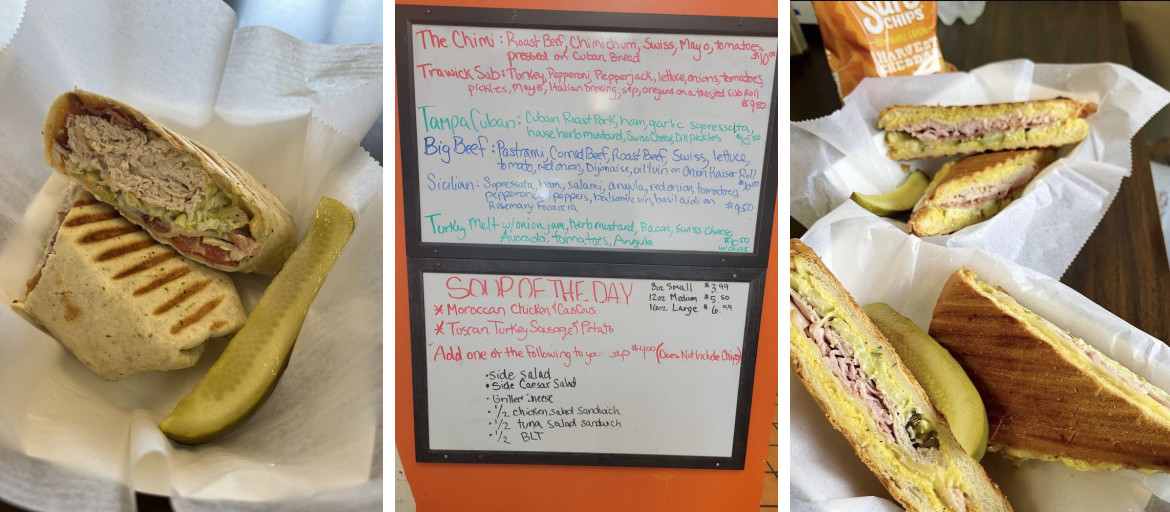 The Chimi: Roast Beef, Chimichurri, Swiss, Mayo, tomatoes
pressed on Cuban Bread $10.00
Trawick Sub: Turkey, Pepperoni, Pepperjack, lettuce, onions, tomatoes,
pickles, Mayo, Italian dressing, s+p, oregano on a toasted Sub Roll
$9.50
Tampa Cuban: Cuban Roast Pork, ham, garlic sopressatta,
house herb mustard, Swiss Cheese, Dill pickles $10.50
Big Beef: Pastrami, Corned Beef, Roast Beef, Swiss, lettuce,
tomato, red onion, Dijonaise, oil + vin on Onion Kaiser Roll
Sicilian: Sopressata, ham, salami, arugula, red onion, tomatoes,
peppers, balsamic vin, basil aioli on $9.50
Rosemary Focaccia
Turkey Melt w/onion jam, herb mustard, Bacon, Swiss Cheese,
Avocado, tomatoes, Arugula $10.50
w/chips
SOUP OF THE DAY
8oz Small $3.99
12oz Medium $5.50
16oz Large $6.99
* Moroccan Chicken & CousCous
* Tuscan Turkey Sausage & Potato
Add one of the following to your soup $4.00 (Does Not Include Chips)
• Side Salad
• Side Caesar Salad
• Grilled Cheese
• 1/2 chicken salad sandwich
• 1/2 tuna salad sandwich
• 1/2 BLT
CHIPS
HARVEST
CHEDDAR